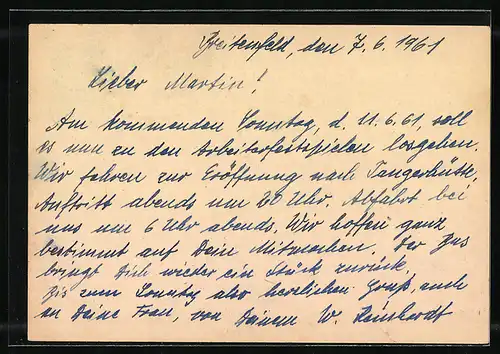 Breitenfeld, den 7.6.1961
Lieber Martin!
Am kommenden Sonntag, d. 11.6.61, soll
es nun zu den Arbeiterfestspielen losgehen.
Wir fahren zur Eröffnung nach Tangerhütte,
Auftritt abends um 20 Uhr, Abfahrt bei
uns um 6 Uhr abends. Wir hoffen ganz
bestimmt auf Dein Mitmachen. Der Bus
bringt Dich wieder ein Stück zurück.
Bis zum Sonntag also herzlichen Gruß, auch
an Deine Frau, von Deinem W. Reinhardt